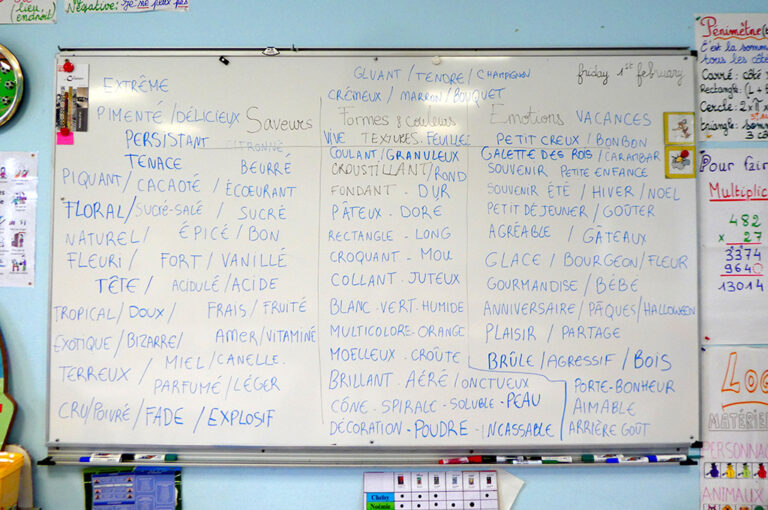 (lieu /
endroit)
Négative: je ne peux pas
GLUANT / TENDRE / CHAMPIGNON
friday 1st february
CRÉMEUX / MARRON / BOUQUET
EXTRÊME
PIMENTÉ / DÉLICIEUX
Saveurs
PERSISTANT CITRONNÉ
TENACE BEURRÉ
PIQUANT / CACAOTÉ / ÉCOEURANT
FLORAL / SUCRÉ-SALÉ / SUCRÉ
NATUREL / ÉPICÉ / BON
FLEURI / FORT / VANILLÉ
TÊTE / ACIDULÉ / ACIDE
TROPICAL / DOUX / FRAIS / FRUITÉ
EXOTIQUE / BIZARRE / AMER / VITAMINÉ
TERREUX / MIEL / CANELLE.
PARFUMÉ / LÉGER
CRU / POIVRÉ / FADE / EXPLOSIF
Formes & Couleurs
VIVE TEXTURES. FEUILLE:
COULANT / GRANULEUX
CROUSTILLANT / ROND
FONDANT - DUR
PÂTEUX - DORÉ
RECTANGLE - LONG
CROQUANT - MOU
COLLANT. JUTEUX
BLANC. VERT. HUMIDE
MULTICOLORE - ORANGE
MOELLEUX. CROÛTE
BRILLANT. AÉRÉ / ONCTUEUX
CÔNE - SPIRALE - SOLUBLE - PEAU
DÉCORATION - POUDRE - INCASSABLE
Emotions VACANCES
PETIT CREUX / BONBON
GALETTE DES ROIS / CARAMBAR
SOUVENIR PETITE ENFANCE
SOUVENIR ÉTÉ / HIVER / NOEL
PETIT DÉJEUNER / GOÛTER
AGRÉABLE / GÂTEAUX
GLACE / BOURGEON / FLEUR
GOURMANDISE / BÉBÉ
ANNIVERSAIRE / PÂQUES / HALLOWEEN
PLAISIR / PARTAGE
BRÛLE / AGRESSIF / BOIS
PORTE-BONHEUR
AIMABLE
ARRIÈRE GOÛT
Périmètre
C'est la somm
tous les côté
Carré: côté x
Rectangle: (L + l
Cercle: 2 x
triangle: somm
3 cô
Pour fair
Multiplic
482
x 27
3374
9640
13014
LOG
MATÉRIE
PERSONNAG
ANIMAUX
Chelsy
Noémie